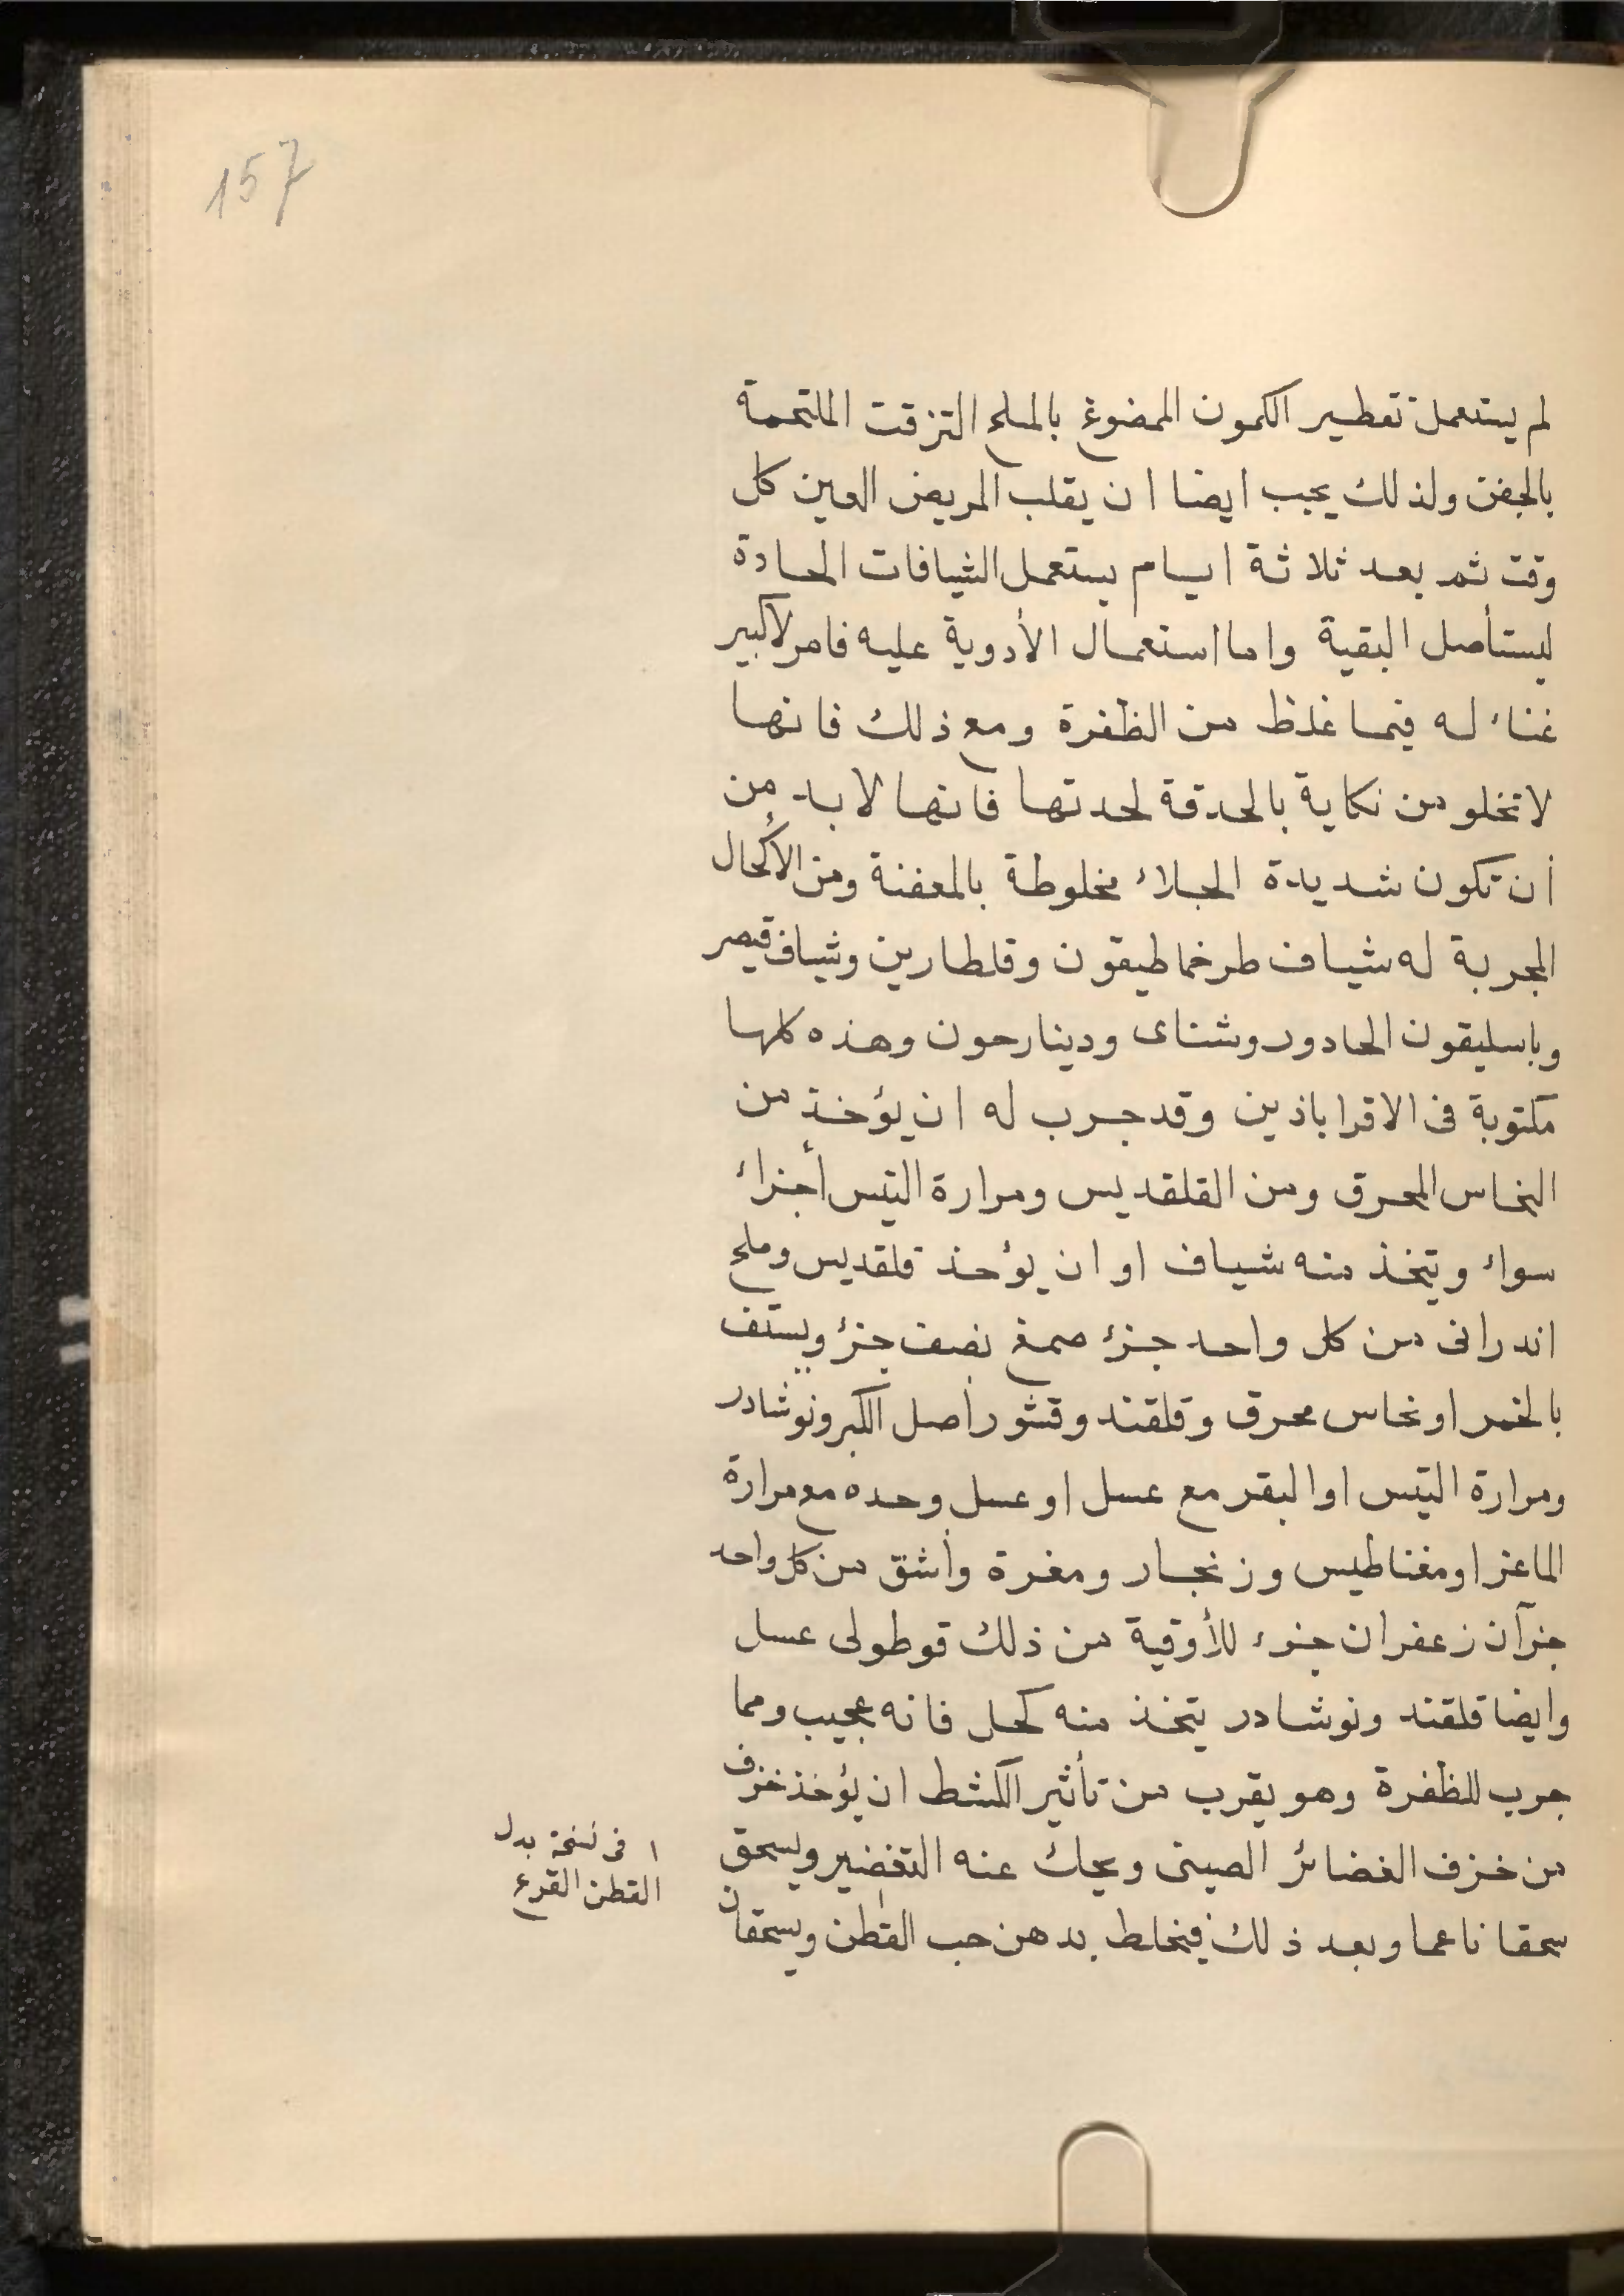 157
لم يستعمل تقطير الكمون الممضوغ بالملح التزقت الملتحمة
بالجفن ولذلك يجب ايضا ان يقلب المريض العين كل
وقت ثم بعد ثلاثة ايام يستعمل الشيافات الحادة
ليستأصل البقية واما استعمال الأدوية عليه فامر لا كبير
غناء له فيما غلظ من الظفرة ومع ذلك فانها
لا تخلو من نكاية بالحدقة لحدتها فانها لا بد من
أن تكون شديدة الجلاء مخلوطة بالمعفنة ومن الأكحال
المجربة له شياف طرخماطيقون وقلطارين وشياف قيصر
وباسليقون الحاد وروشناى ودينارحون وهذه كلها
مكتوبة فى الاقراباذين وقد جرب له ان يؤخذ من
النحاس المحرق ومن القلقديس ومرارة التيس أجزاء
سواء ويتخذ منه شياف او ان يؤحذ قلقديس وملح
اندرانى من كل واحد جزء صمغ نصف جزء ويستف
بالخمر او نحاس محرق وقلقند وقشور أصل الكبر ونوشادر
ومرارة التيس او البقر مع عسل او عسل وحده مع مرارة
الماعز او مغناطيس وزنجار ومغرة وأشق من كل واحد
جزآن زعفران جزء للأوقية من ذلك قوطولى عسل
وايضا قلقند ونوشادر يتخذ منه كحل فانه عجيب ومما
جرب للظفرة وهو يقرب من تأثير الكشط ان يؤخذ خزف
من خزف الغضائر الصينى ويحك عنه التغضير ويسحق
سحقا ناعما وبعد ذلك فيخلط بدهن حب القطن١ ويسحقان
١ فى نسخة بدل
القطن القرع